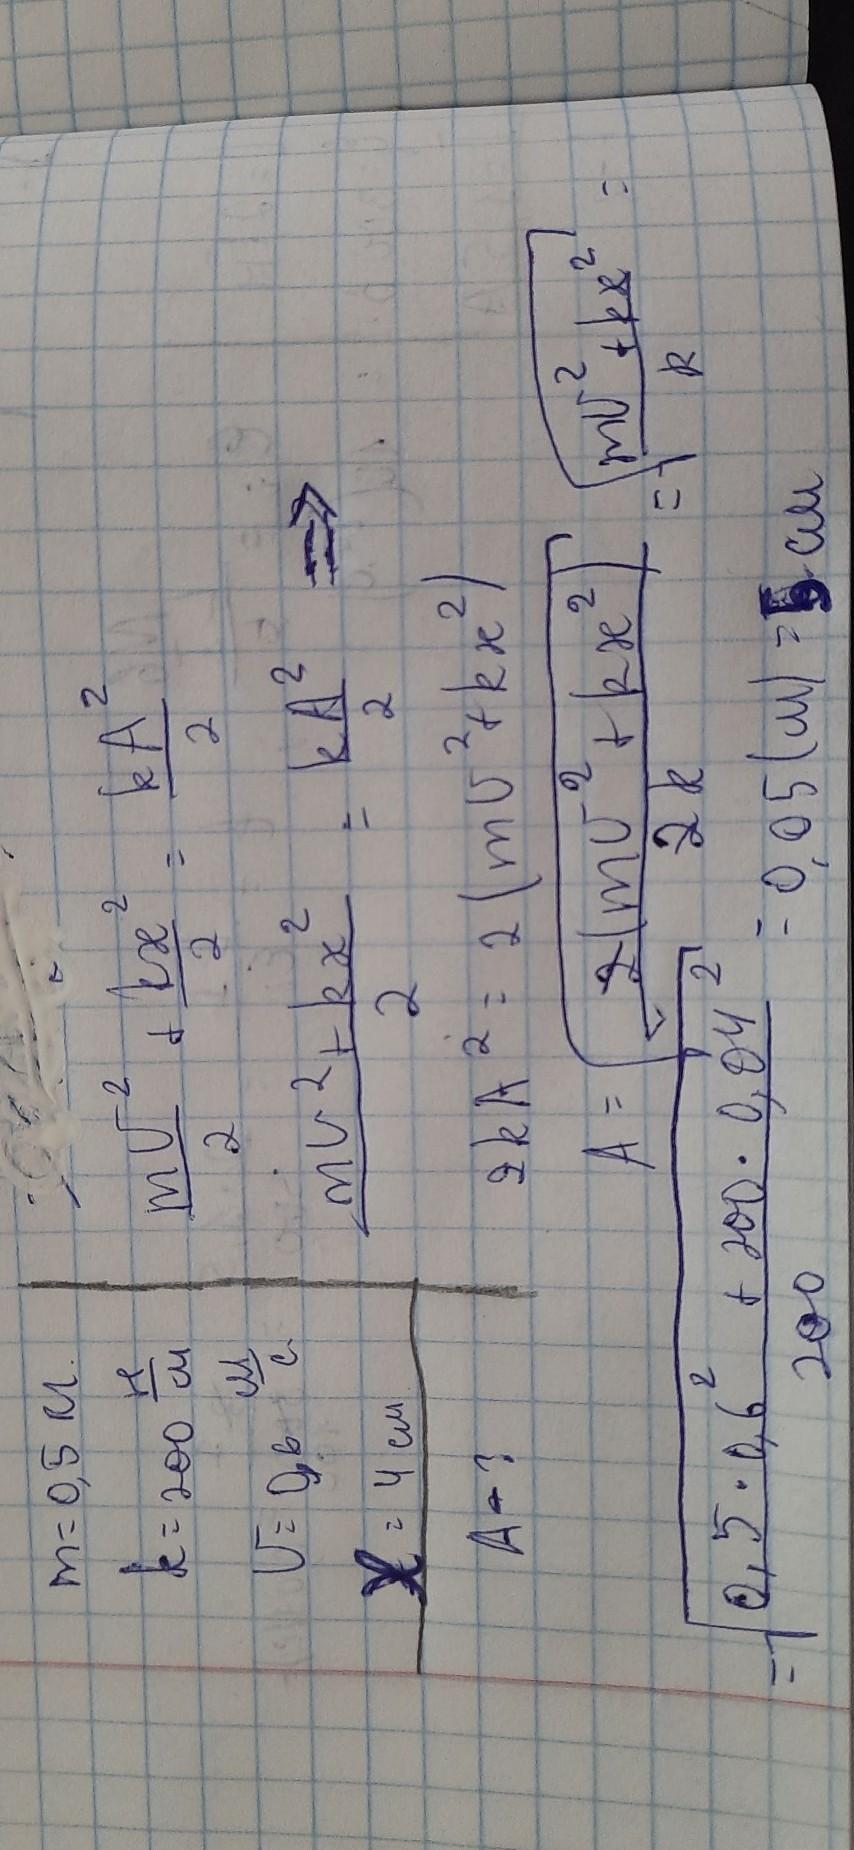 m = 0,5 кг.
k = 200 Н/м
υ = 0,6 м/с
x = 4 см
A - ?
mυ²/2 + kx²/2 = kA²/2
(mυ² + kx²)/2 = kA²/2 ⇒
2kA² = 2(mυ² + kx²)
A = √(2(mυ² + kx²)/2k) = √((mυ² + kx²)/k) =
= √((0,5 · 0,6² + 200 · 0,04²)/200) = 0,05(м) = 5 см